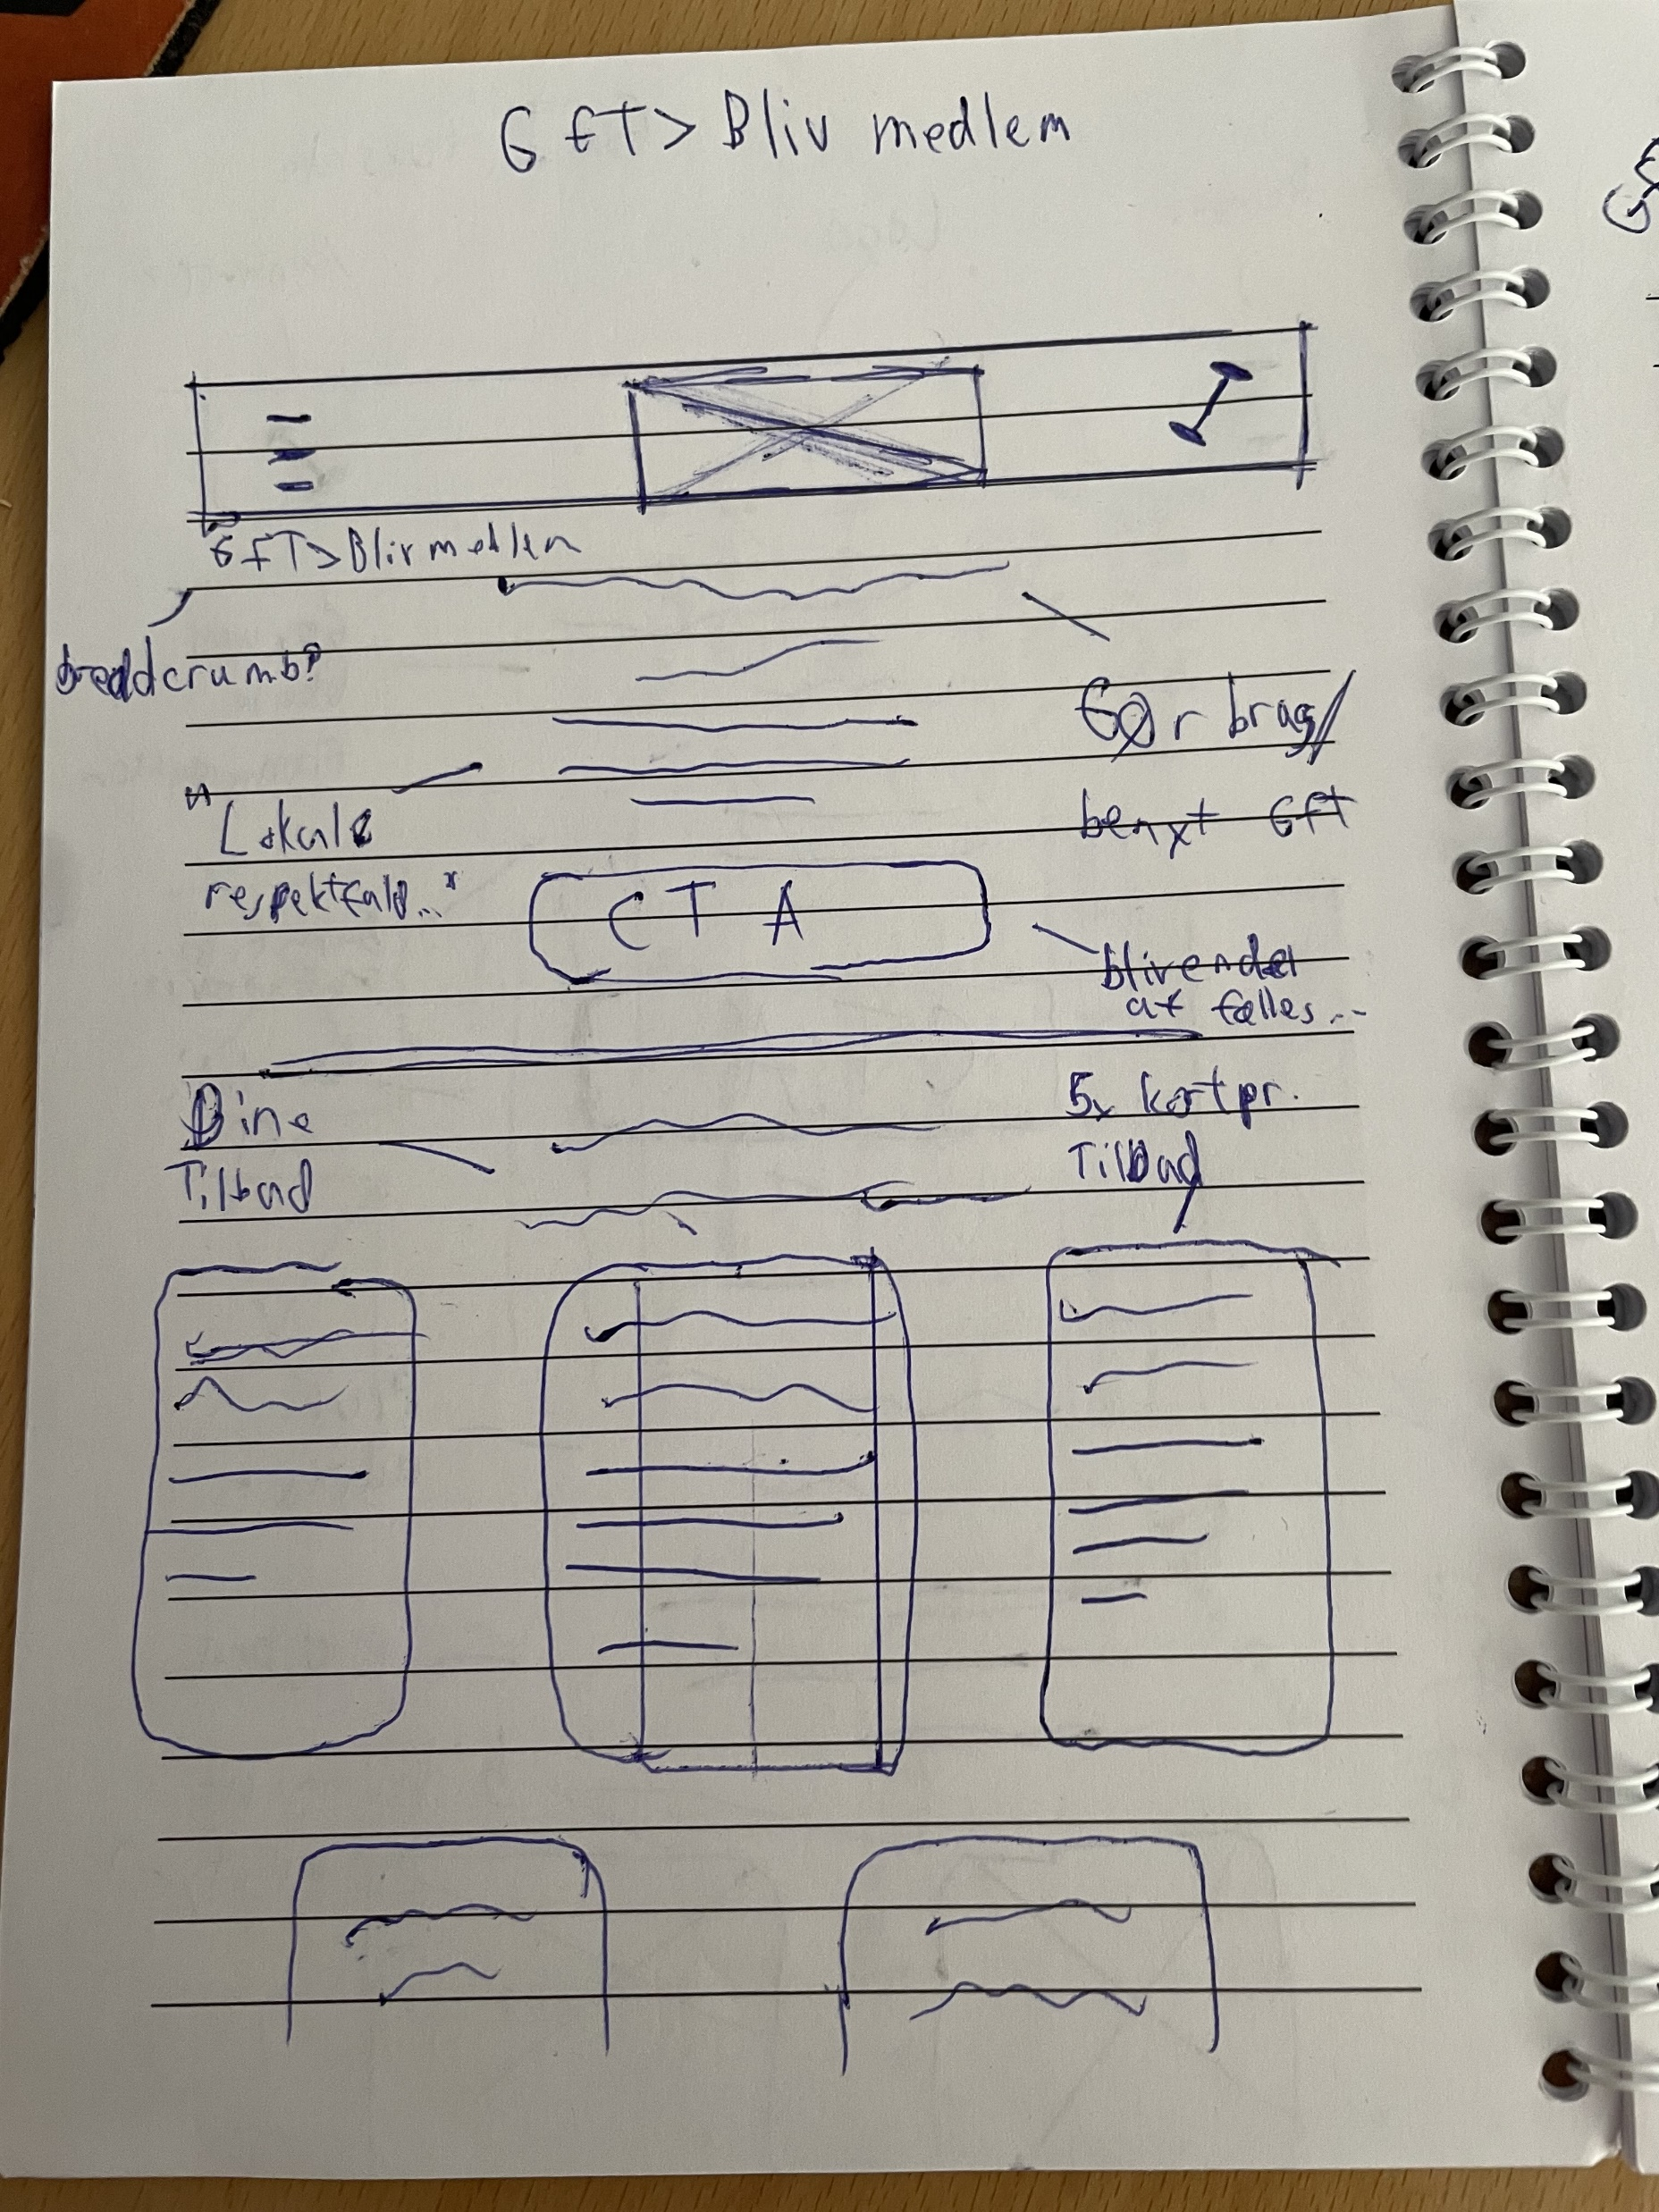 GFT > Bliv medlem
GFT > Bliv medlem
breadcrumb?
Gør brag/
benyt GFT
"Lokale
respektfuld..."
CTA
bliv en del
af fælles...
Dine
Tilbud
5x kort pr.
Tilbud